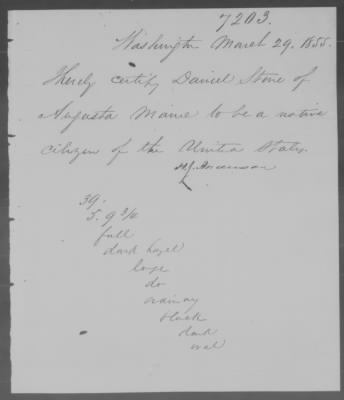 7203.
Washington March 29. 1855.
I herely certify Daniel Stone of
Augusta Maine to be a native
citizen of the United States.
39.
5. 9 3/4
full
dark hazel
large
do
ordinary
black
dark
oval